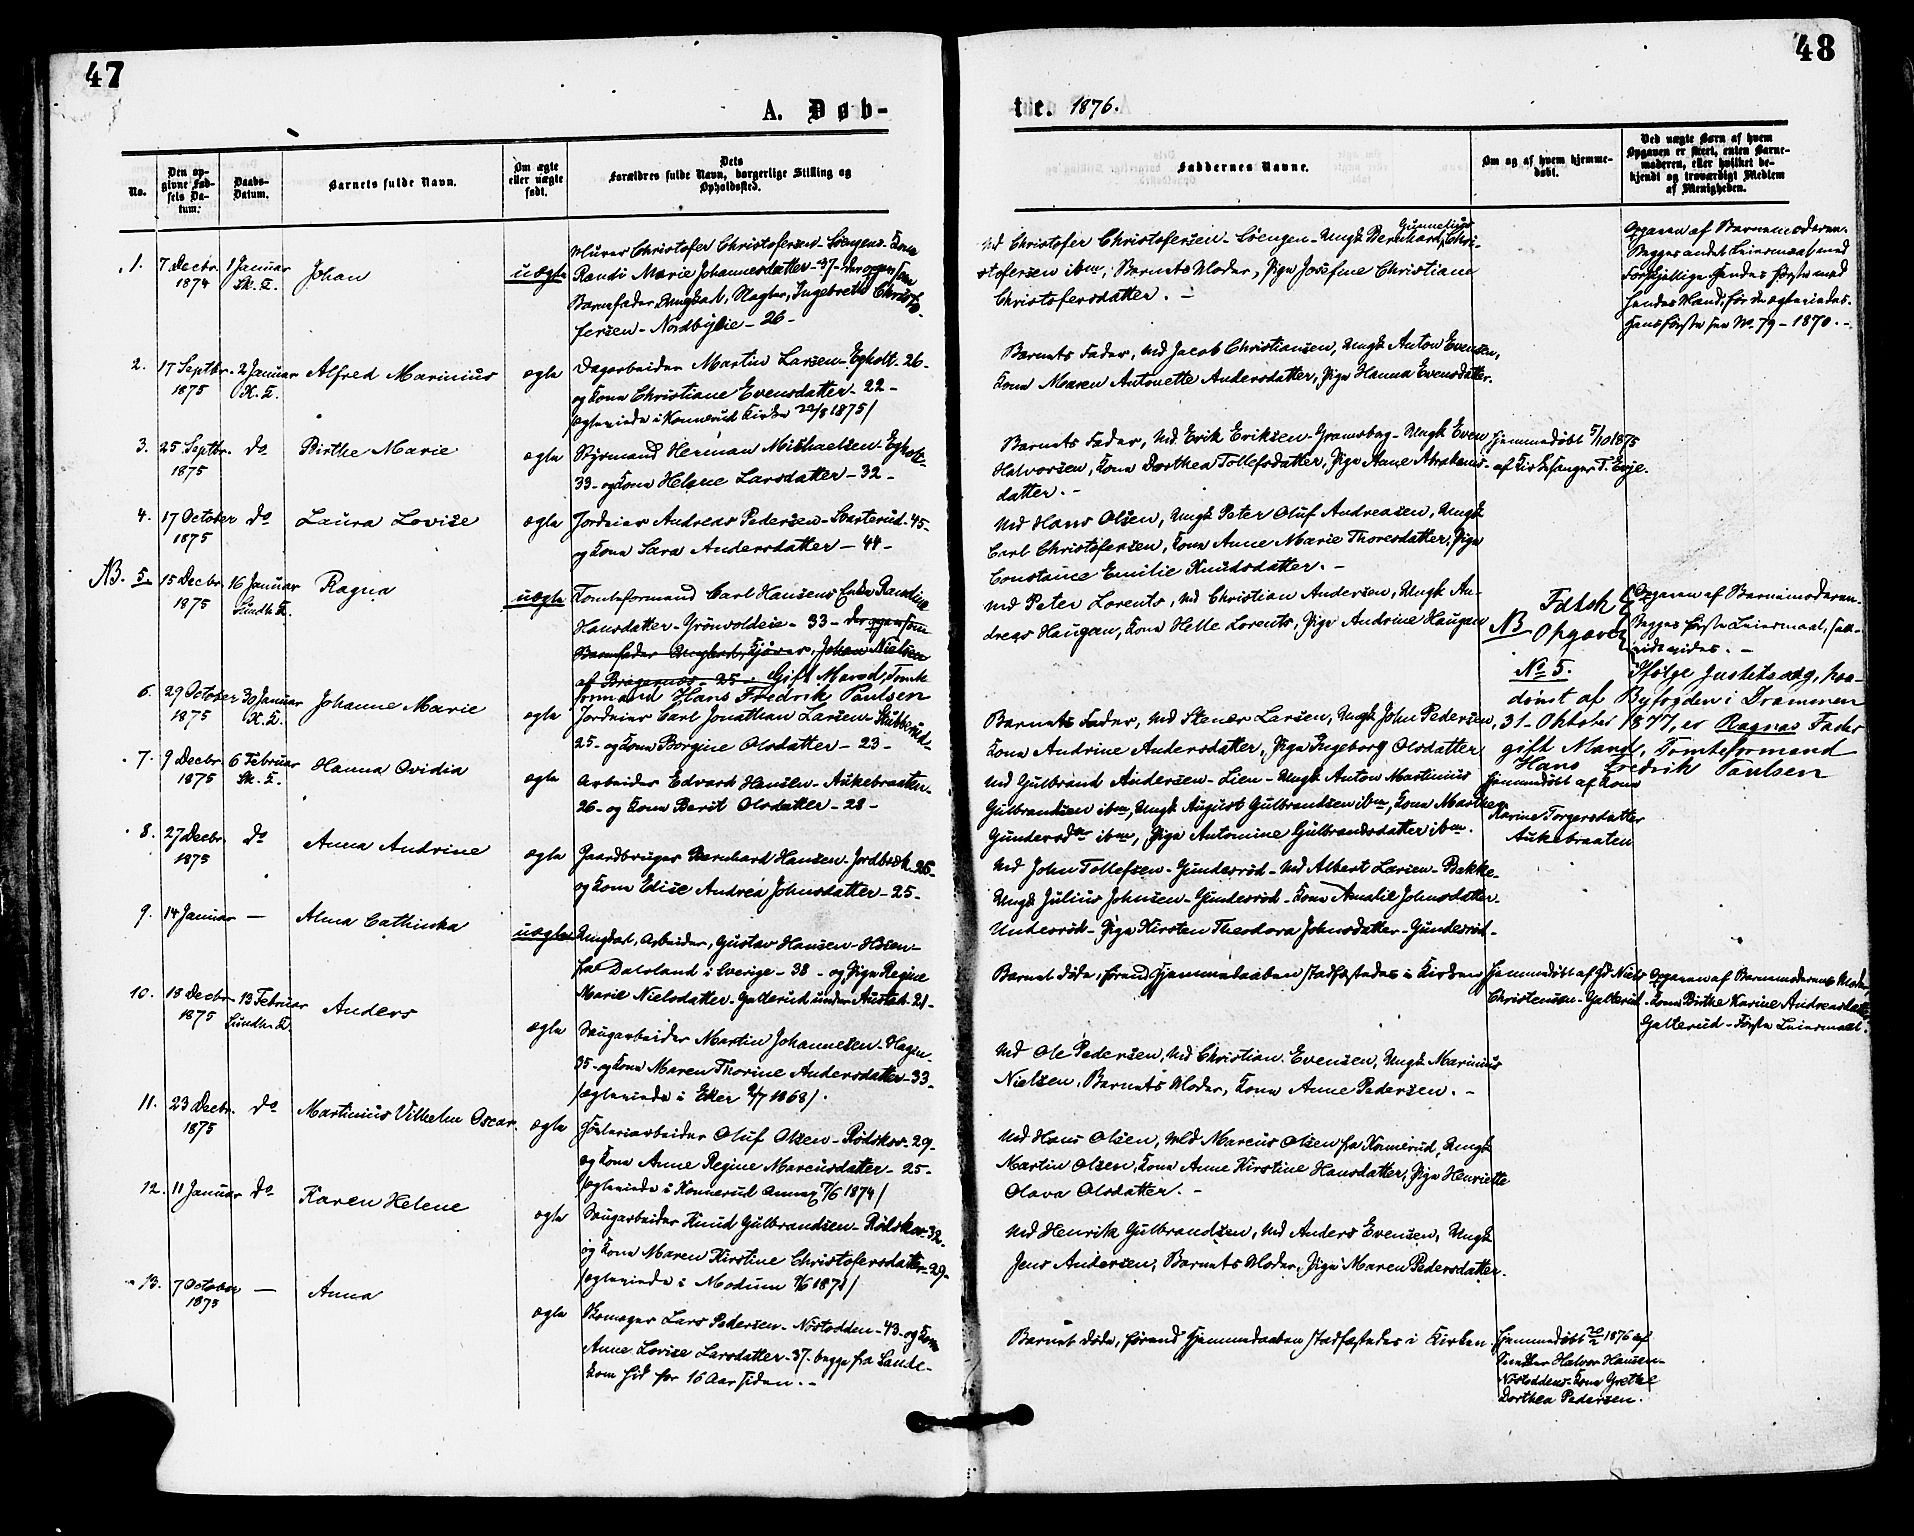 47
48
A. Døb-
te. 1876.
No.
Den op-
givne Fød-
sels Da-
tum.
Daabs-
Datum.
Barnets fulde Navn.
Om ægte
eller uægte
født.
Dets
Forældres fulde Navn, borgerlige Stilling og
Opholdssted.
Faddernes Navne.
Om og af hvem hjemme-
døbt.
Ved uægte Børn af hvem
Opgaven er skeet, enten Barne-
moderen, eller hvilket be-
kjendt og troværdigt Medlem
af Menigheden.
1. 7 Decbr. 1874
1 Januar
Sk. K.
Johan
uægte
Murer Christofer Christofersen - Søengens Kone
Randi Marie Johannesdatter - 37 - der opgav som
Barnefader Ungdad, Slagter, Ingebreth Christo-
fersen - Nordbyeie - 26 -
Md Christofer Christofersen - Søengen - Ungk Bernhard Gunnelius Chri-
stofersen ibm, Barnets Moder, Pige Josefine Christiane
Christofersdatter. -
Opgaven af Barnemoderen.
Begges andet Leiermaal med
forskjellige. Hendes første med
hendes Mand, før de ægteviedes.
Hans første see No 79 - 1870. -
2. 17 Septbr. 1875
2 Januar
K. K.
Alfred Marinius
ægte
Dagarbeider Martin Larsen - Egholt - 26 -
og Kone Christiane Evensdatter - 22 -
(ægteviede i Konnerud Kirke 22/8 1875)
Barnets Fader, Md Jacob Christiansen, Ungk Anton Evensen,
Kone Maren Antonette Andersdatter, Pige Hanna Evensdatter.
3. 25 Septbr. 1875
do
Birthe Marie
ægte
Styrmand Herman Michaelsen - Egholt -
33 - og Kone Helene Larsdatter - 32 -
Barnets Fader, Md Erik Eriksen - Gramsbog - Ungk Even
Halvorsen, Kone Dorthea Tollefsdatter, Pige Aane Abrahams-
datter. -
Hjemmedøbt 5/10 1875
af Kirkesanger T. Evje.
4. 17 October 1875
do
Laura Lovise
ægte
Jordeier Andreas Pedersen - Starterud - 45 -
og Kone Sara Andersdatter - 44 -
Md Hans Olsen, Ungk Peter Oluf Andreasen, Ungk
Carl Christofersen, Kone Anne Marie Thoresdatter, Pige
Constance Emilie Knudsdatter. -
NB. 5. 15 Decbr. 1875
16 Januar
Sundh. K.
Ragna
uægte
Tomteformand Carl Hansens Enke Randine
Hansdatter - Grönvoldeie - 33 - der opgav som
Barnefader Ungkarl, Kjører, Johan Nielsen
af Bragernæs - 25 - Gift Mand, Tomte-
formand Hans Fredrik Paulsen
Md Peter Lorents, Md Christian Andersen, Ungk An-
dreas Haugan, Kone Helle Lorents, Pige Andrine Haugan
Falsk
NB Opgave
No 5.
Opgaven af Barnemoderen.
Begges første Leiermaal,
Ifølge Justitssag, paa-
dømt af Byfogden i Drammen
31 Oktober 1877, er Ragnas Fader
gift Mand, Tomteformand
Hans Fredrik Paulsen
6. 29 October 1875
30 Januar
K. K.
Johanne Marie
ægte
Jordeier Carl Jonathan Larsen - Stubberud -
25 - og Kone Borgine Olsdatter - 23 -
Barnets Fader, Md Stener Larsen, Ungk John Pedersen,
Kone Andrine Andersdatter, Pige Ingeborg Olsdatter
7. 9 Decbr. 1875
6 Februar
Sk. K.
Hanna Ovidia
ægte
Arbeider Edvard Hansen - Aukebraaten -
26 - og Kone Berit Olsdatter - 28 -
Md Gulbrand Andersen - Lien - Ungk Anton Martinius
Gulbrandsen ibm, Ungk August Gulbrandsen ibm, Kone Marthe
Gundersdtr ibm, Pige Antomine Gulbrandsdatter ibm.
Hjemmedøbt af Kone
Karine Torgersdatter
Aukebraaten
8. 27 Decbr. 1875
do
Anna Andrine
ægte
Gaardbruger Bernhard Hansen - Jordbræk - 25 -
og Kone Edise Andrea Johnsdatter - 25 -
Md John Tollefsen - Gunderød - Md Albert Larsen - Bakke -
Ungk Julius Johnsen - Gunderød - Kone Amalie Johnsdatter
Underøk - Pige Kirsten Theodora Johnsdatter - Gunderød -
9. 14 Januar
—
Alma Cathinka
uægte
Ungdad, Arbeider, Gustav Hansen - Høen -
fra Dalsland i Sverige - 38 - og Pige Regine
Marie Nielsdatter - Galterud under Austad - 21 -
Barnet døde, førend Hjemmedaaben stadfæstedes i Kirken
Hjemmedøbt af Gd Niels
Christensen - Galterud
Opgaven af Barnemoderens Moder
Kone Birthe Karine Andreasdatter
Galterud - Første Leiermaal.
10. 18 Decbr. 1875
13 Februar
Sundh. K.
Anders
ægte
Saugarbeider Martin Johannesen - Hagen -
35 - og Kone Maren Thorine Andersdatter - 33 -
(ægteviede i Eker 2/7 1868).
Md Ole Pedersen, Md Christian Evensen, Ungk Marinius
Nielsen, Barnets Moder, Kone Anne Pedersen. -
11. 23 Decbr. 1875
do
Martinius Vilhelm Oscar.
ægte
Høvleriarbeider Oluf Olsen - Rødskov - 29 -
og Kone Anne Regine Marcusdatter - 25 -
(ægteviede i Konnerud Annex 7/6 1874)
Md Hans Olsen, Md Marcus Olsen fra Konnerud, Ungk
Martin Olsen, Kone Anne Kirstine Hansdatter, Pige Henriette
Olava Olsdatter. -
12. 11 Januar
do
Karen Helene
ægte
Saugarbeider Knud Gulbrandsen - Rødskov - 32 -
og Kone Maren Kirstine Christofersdatter - 29 -
(ægteviede i Modum 1871)
Md Henrik Gulbrandsen, Md Anders Evensen, Ungk
Jens Andersen, Barnets Moder, Pige Maren Pedersdatter.
13. 7 October 1875
—
Anna
ægte
Skomager Lars Pedersen - Nøstodden - 43 - og Kone
Anne Lovise Larsdatter - 37 - begge fra Sande -
kom hid for 16 Aar siden. -
Barnet døde, førend Hjemmedaaben stadfæstedes i Kirken
Hjemmedøbt 1876 af
Halvor Hansen -
Nøstoddens Kone Grethe
Dorthea Pedersen.